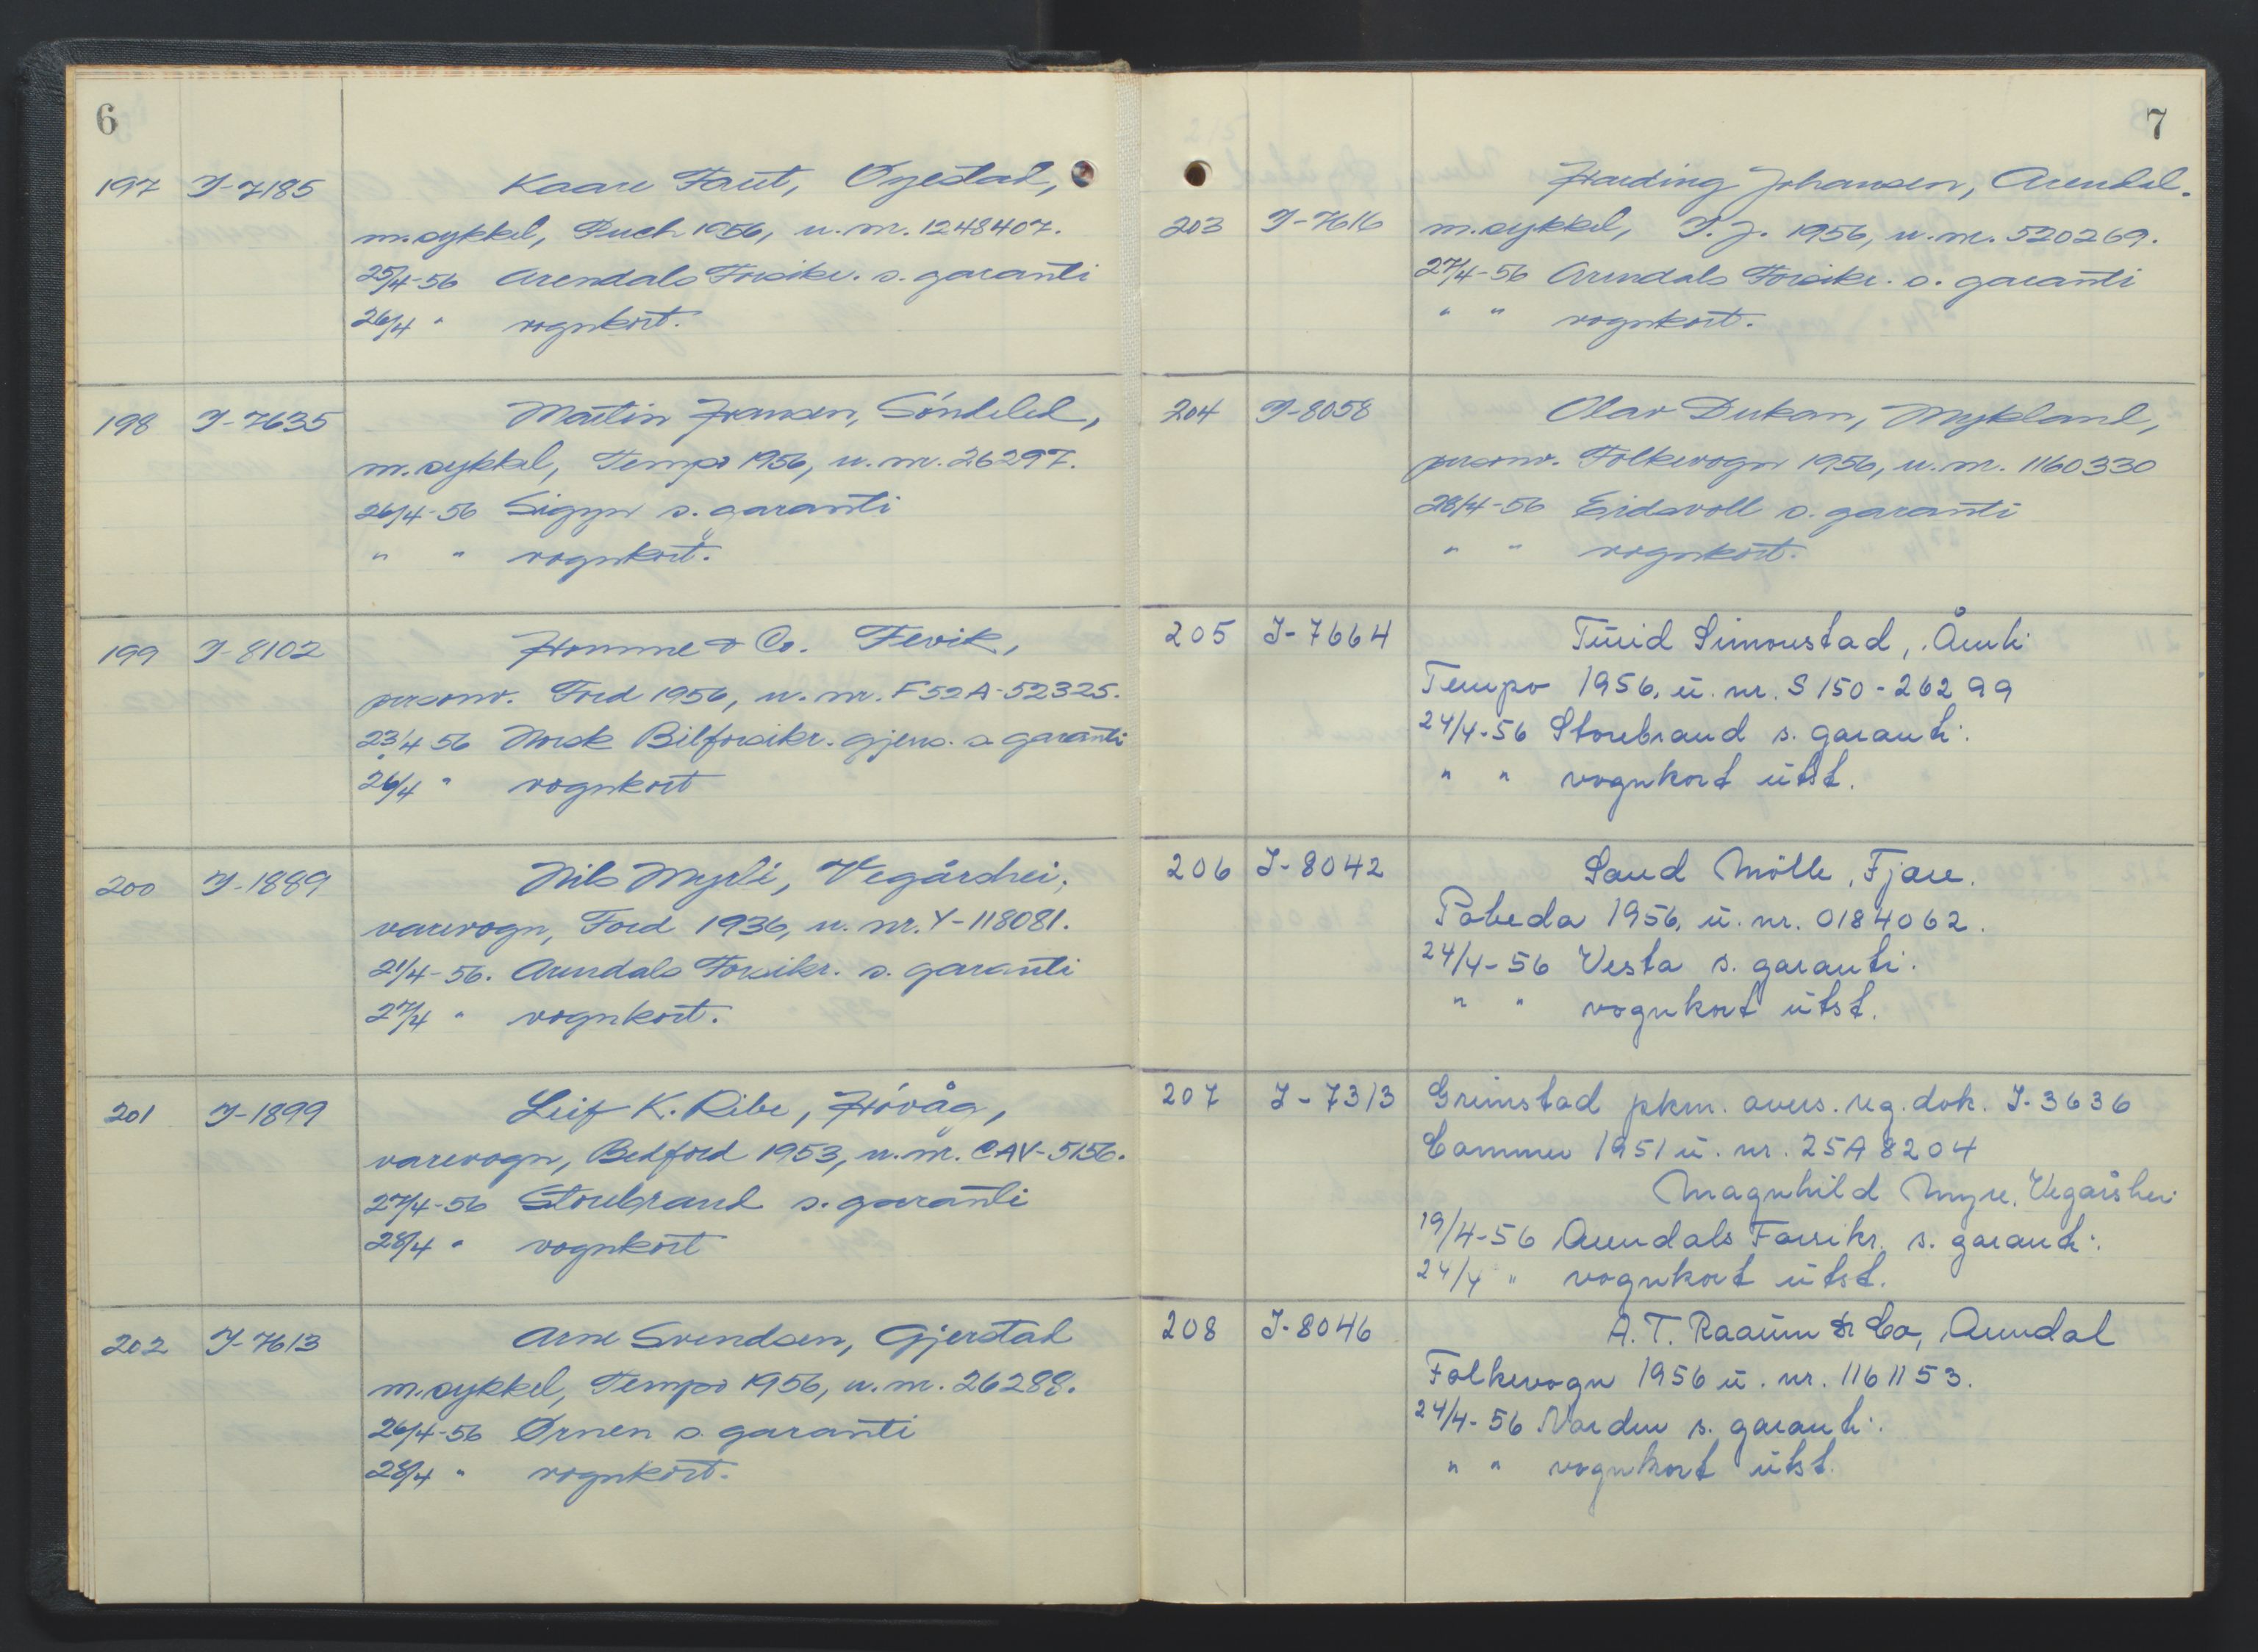 6
197 I-7185 Kaare Faret, Øyestad,
m.sykkel, Puch 1956, u. nr. 1248407.
25/4-56 Arendals Forsikr. s. garanti
26/4 " vognkort.
198 I-7635 Martin Jransen, Söndeled,
m.sykkel, Tempo 1956, u. nr. 26297.
26/4-56 Sigyn s. garanti
" " vognkort.
199 I-8102 Homme & Co. Fevik,
personv. Ford 1956, u. nr. F52A-52325.
23/4 56 Norsk Bilforsikr. gjens. s garanti
26/4 " vognkort
200 I-1889 Nils Myrli, Vegårshei,
varevogn, Ford 1936, u. nr. Y-118081.
21/4-56. Arendals Forsikr. s. garanti
27/4 " vognkort.
201 I-1899 Leif K. Ribe, Hövåg,
varevogn, Bedford 1953, u. nr. CAV-5156.
27/4-56 Storebrand s. garanti
28/4 " vognkort
202 I-7613 Arne Svendsen, Gjerstad
m.sykkel, Tempo 1956, u. nr. 26288.
26/4-56 Ørnen s. garanti
28/4 " vognkort.
7
Harding Johansen, Arendal.
203 I-7616 m.sykkel, I.J. 1956, u. nr. 520269.
27/4-56 Arendals Forsikr. s. garanti
" " vognkort.
204 I-8058 Olav Dukan, Mykland,
personv. Folkevogn 1956, u. nr. 1160330
28/4-56 Eidsvoll s. garanti
" " vognkort.
205 I-7664 Turid Simonstad, Åmli
Tempo 1956, u. nr. S 150-26299
24/4-56 Storebrand s. garanti.
" " vognkort utst.
206 I-8042 Sand Mölle, Fjære.
Pobeda 1956, u. nr. 0184062.
24/4-56 Vesta s. garanti.
" " vognkort utst.
207 I-7313 Grimstad pkm. overs. reg. dok. I-3636
Commer 1951 u. nr. 25A8204
Magnhild Myre, Vegårshei
19/4-56 Arendals Forsikr. s. garanti.
24/4 " vognkort utst.
208 I-8046 A. T. Raaum & Co, Arendal
Folkevogn 1956 u. nr. 1161153.
24/4-56 Norden s. garanti.
" " vognkort utst.